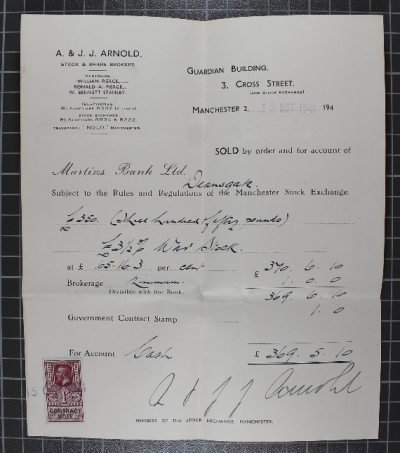 A. & J. J. ARNOLD.
STOCK & SHARE BROKERS.
PARTNERS
WILLIAM PIERCE.
RONALD A. PIERCE.
W. BENNETT STANDEY.
TELEPHONE
STOCK EXCHANGE
BLACKFRIARS 8834 & 8222.
TELEGRAMS: "NOLD," MANCHESTER.
GUARDIAN BUILDING,
3, CROSS STREET,
MANCHESTER 2, 194
SOLD by order and for account of
Martins Bank Ltd. Deansgate.
Subject to the Rules and Regulations of the Manchester Stock Exchange.
£350 (Three hundred & fifty pounds)
£3½% War Stock.
at £ 105.16.3 per cent £ 370. 6. 10
Brokerage 1. 0. 0
Divisible with the Bank. 369. 6. 10
Government Contract Stamp 1. 0
For Account Cash £ 369. 5. 10
A & J J Arnold
CONTRACT
NOTE
MEMBERS OF THE STOCK EXCHANGE, MANCHESTER.